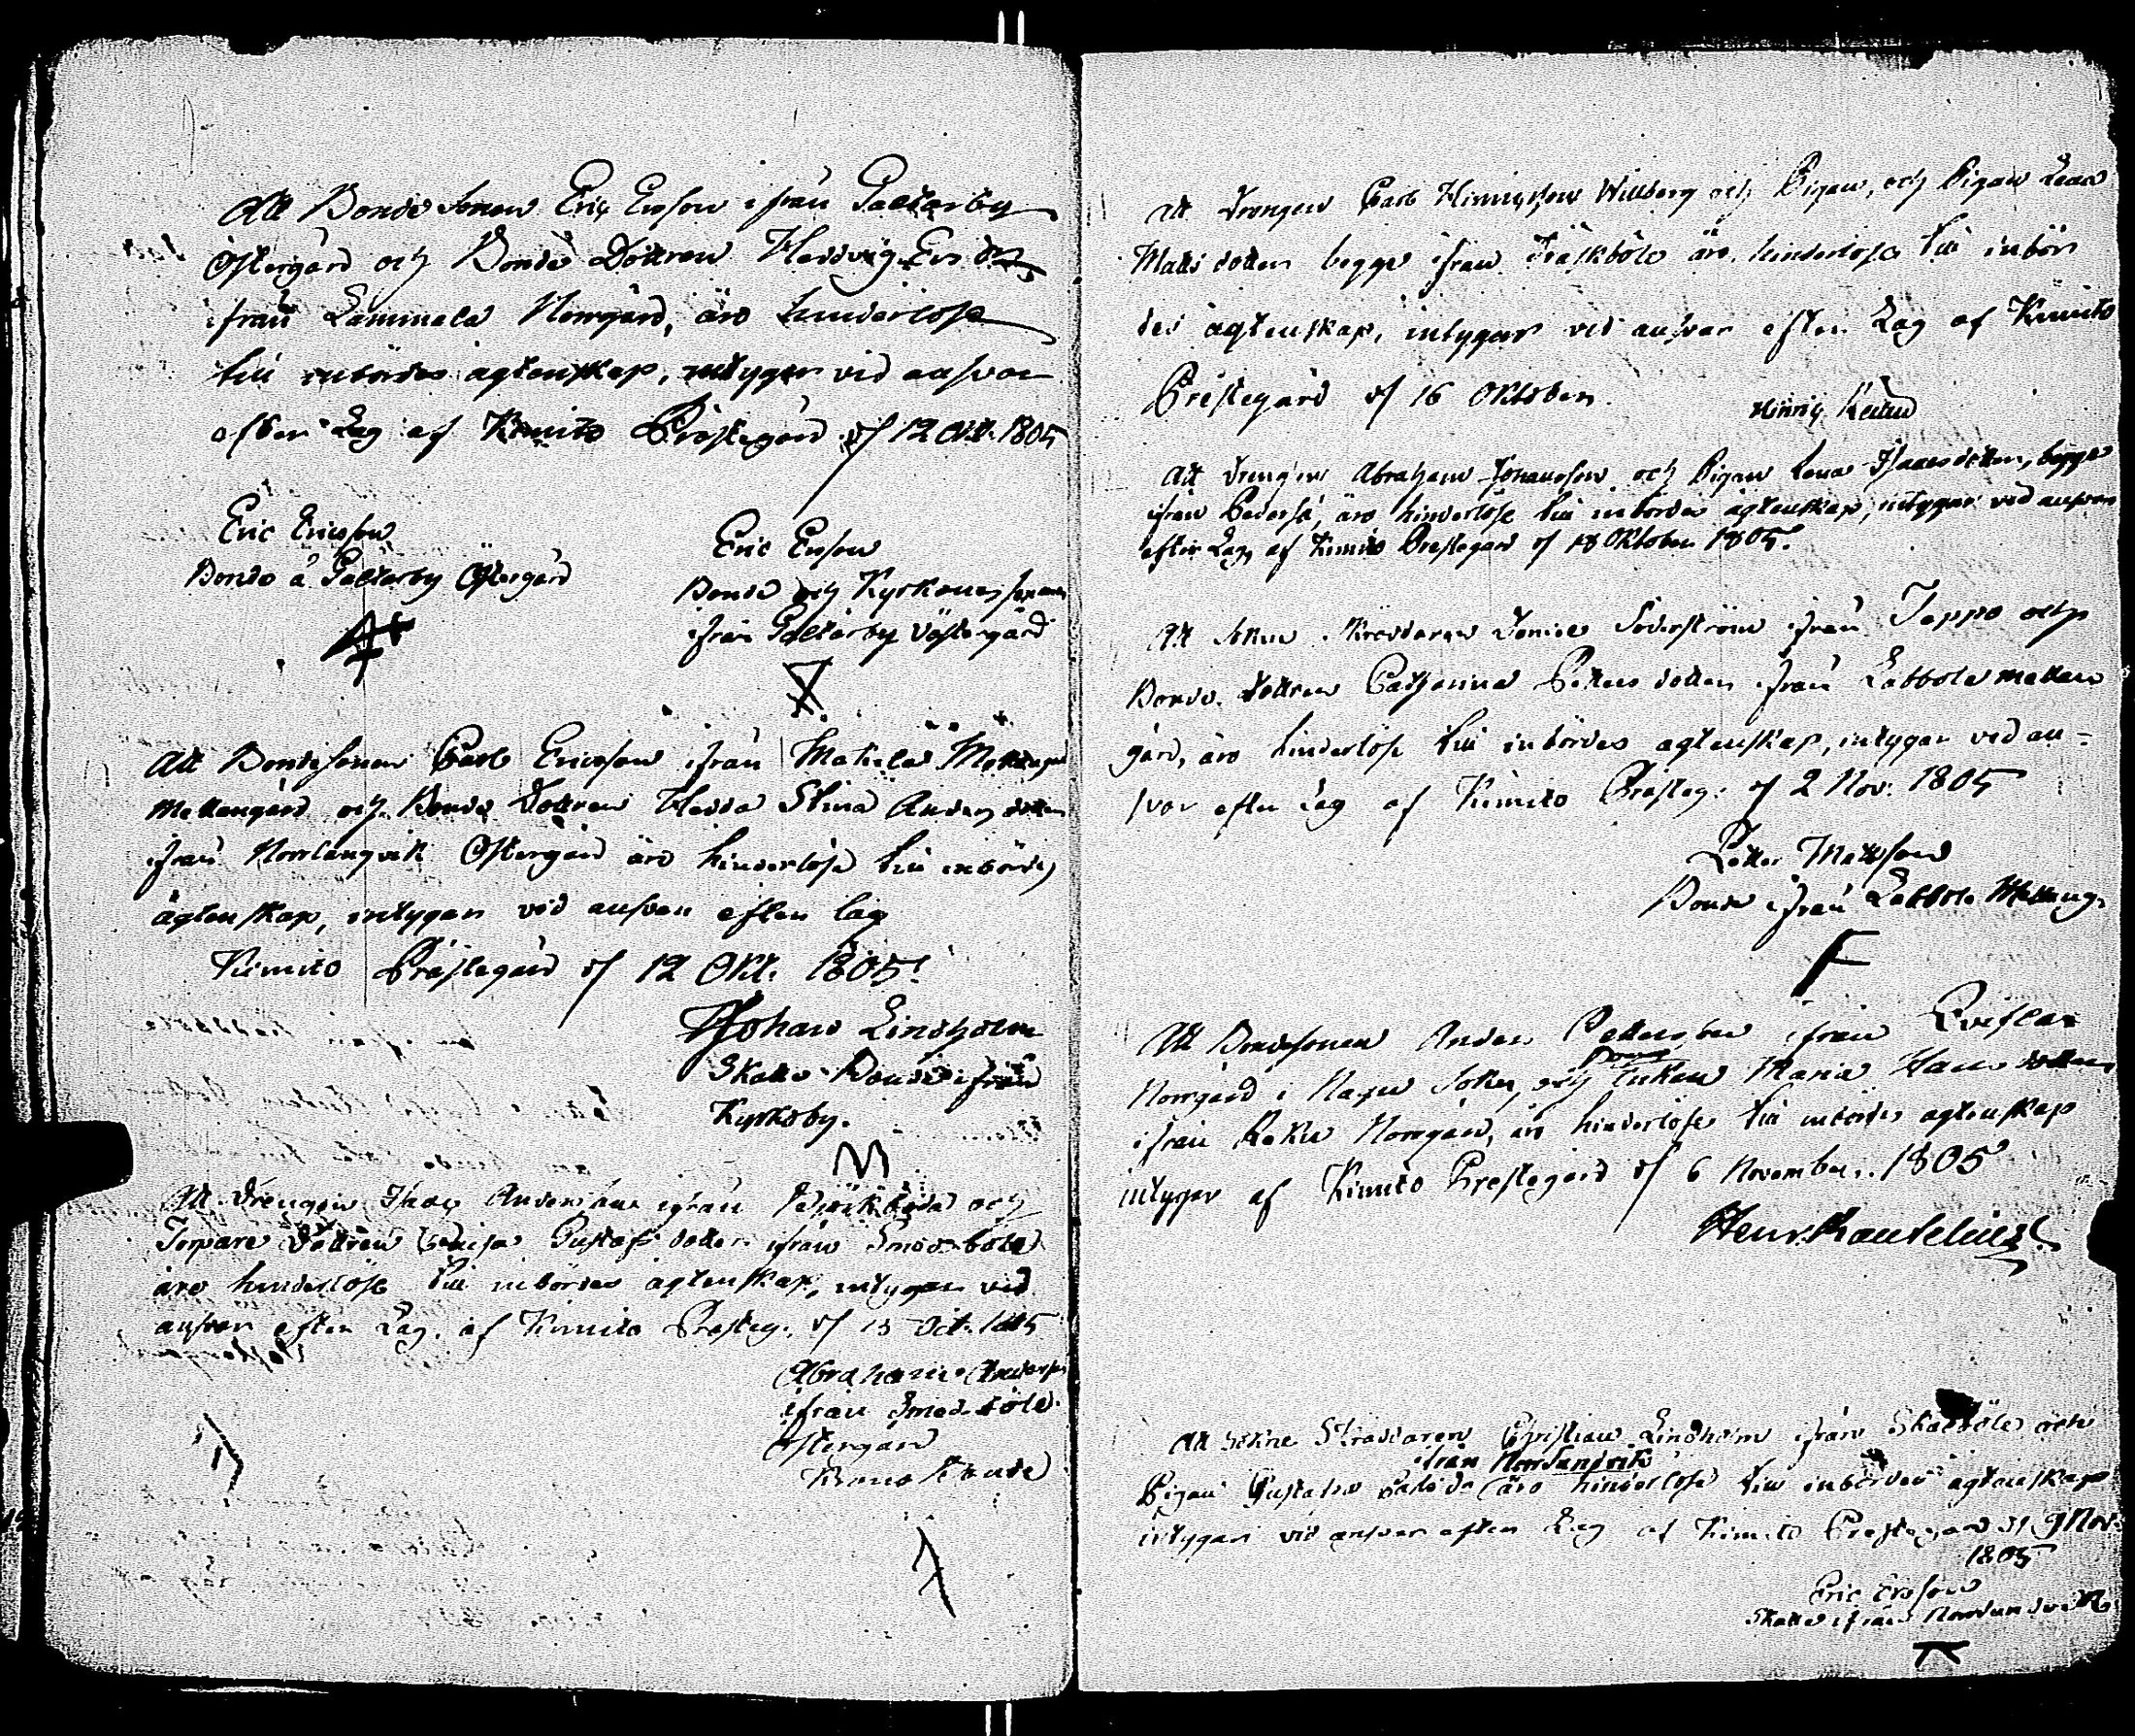 Att Bonde Sonen Eric Ersson ifrån Galtarby
Östergård och Bonde Dottren Hedvig Ers dr
ifrån Lammala Norrgård, äro hinderlöse
till inbördes ägtenskap, intygar vid answar
efter Lag af Kimito Prästegård d/ 12 Okt. 1805
Eric Ericsson
Bonde å Galtarby Östergård
Eric Ersson
Bonde och Kyrkones
ifrån Galtarby Västergård
Att Bondesonen Carl Ericsson ifrån Makila
Mellangård och Bonde Dottren Hedda Stina Anders dotter
ifrån Norrlangvik Östergård äro hinderlöse till inbördes
ägtenskap, intygar vid answar efter lag
Kimito Prästegård d/ 12 Okt. 1805.
Johan Lindholm
Skatte Bonde ifrån
Kyrkoby.
Att Drengen Isac Andersson ifrån Björkboda och
Torpare Dottren Caisa Gustafs dotter ifrån Smedsböle
äro hinderlöse till inbördes ägtenskap, intygar vid
answar efter Lag. af Kimito Prästeg. d/ 13 Oct. 1805
Abraham Andersson
ifrån Smedsböle
Östergård
Krono Bonde
Att Drengen Carl Hinrichson Willberg och Pigan, och Pigan Lena
Matts dotter begge ifrån Träskböle äro hinderlöse till inbör
des ägtenskap, intygar vid answar efter Lag af Kimito
Prästegård d/ 16 Oktober.
Hinric
Att Drengen Abraham Johansson och Pigan Lena Isaacs dotter, begge
ifrån Pederså, äro hinderlöse till inbördes ägtenskap, intygar vid answar
efter Lag, af Kimito Prestegård d/ 18 Oktober 1805.
Att Sokne Skreddaren Daniel Söderström ifrån Jappo och
Bonde Dottren Catharina Petters dotter ifrån Labbola mellan
gård, äro hinderlöse till inbördes ägtenskap, intygar vid an-
svar efter Lag af Kimito Prästeg. d/ 2 Nov. 1805
Petter Mattsson
Bonde ifrån Labbola Mellang.
Att Bondesonen Anders Pettersson ifrån
Norrgård i Nagu Sokn, och Bonde Enkan Maria Hans dotter
ifrån Reku Norrgård, äro hinderlöse till inbördes ägtenskap
intygar af Kimito Prestegård d/ 6 November. 1805
Henr. Rautelius
Att Sokne Skraddaren Christian Lindholm ifrån Skalböle och
ifrån Norrsundvik
Pigan Gustafva äro hinderlöse till inbördes ägtenskap
intygar vid answar efter Lag af Kimito Prestegård d/ 9 Nov.
1805
Eric Ersson
Skatte ifrån Norrsundvik